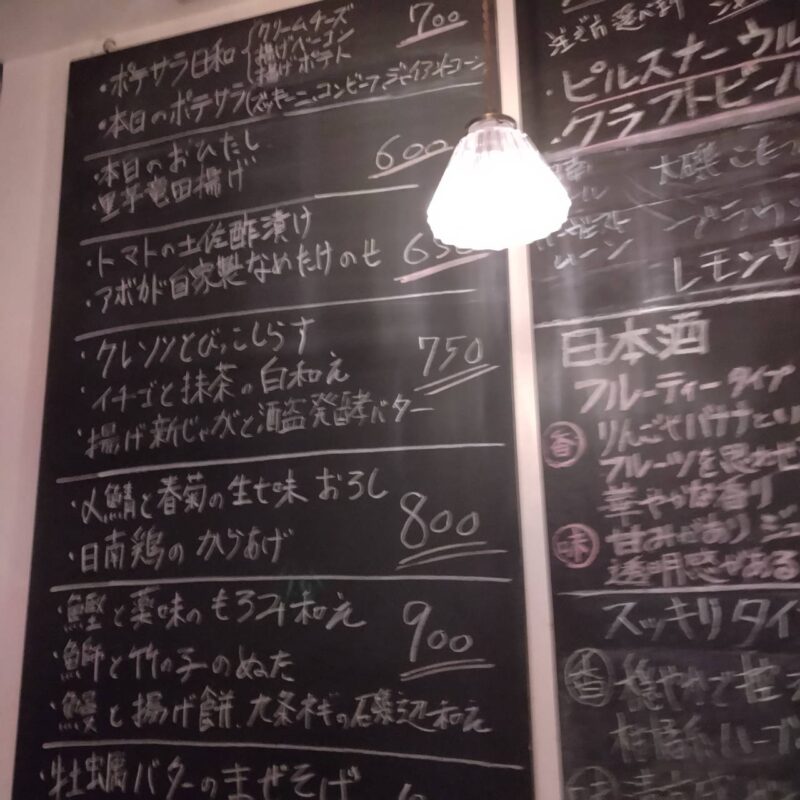 ・ポテサラ日和 クリームチーズ 揚げベーコン 揚げポテト 700
・本日のポテサラ(ズッキーニ、コンビーフ、ジャイアントコーン
・本日のおひたし 600
・里芋竜田揚げ
・トマトの土佐酢漬け
・アボカド自家製なめたけのせ
・クレソンとびっこしらす 750
・イチゴと抹茶の白和え
・揚げ新じゃがと酒盗発酵バター
・〆鯖と春菊の生七味おろし 800
・日南鶏のからあげ
・鰹と薬味のもろみ和え 900
・鰤と竹の子のぬた
・鰻と揚げ餅、九条ネギの磯辺和え
・牡蠣バターのまぜそば
・ピルスナーウル
・クラフトビール
大磯こも
ムーン
ブラウン
レモンサ
日本酒
フルーティータイプ
香 りんごやバナナとい
フルーツを思わせ
華やかな香り
味 甘みがありジュ
透明感がある
スッキリタイ
香 穏やかで
柑橘系ハーブ
味